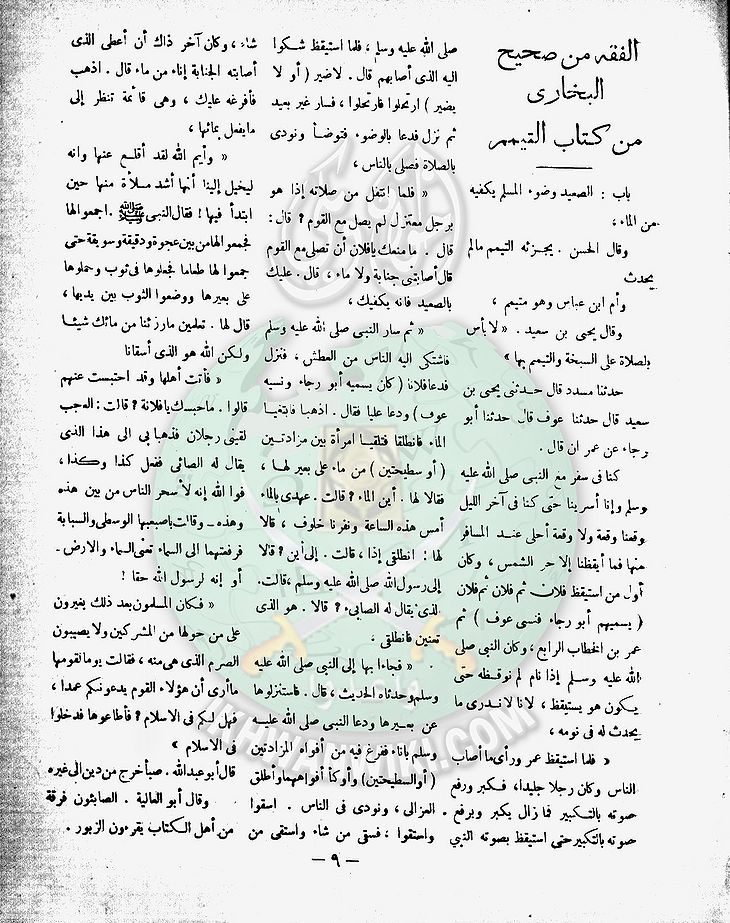 الفقه من صحيح
البخارى
من كتاب التيمم
باب : الصعيد وضوء المسلم يكفيه
من الماء ،
وقال الحسن . يجزئه التيمم مالم
يحدث
وأم ابن عباس وهو متيمم ،
وقال يحيى بن سعيد . « لا بأس
بلصلاة على السبخة والتيمم بها »
حدثنا مسدد قال حدثنى يحيى بن
سعيد قال حدثنا عوف قال حدثنا أبو
رجاء عن عمران قال .
كنا فى سفر مع النبى صلى الله عليه
وسلم وإنا أسرينا حتى كنا فى آخر الليل
وقعنا وقعة ولا وقعة أحلى عنـد المسافر
منها فما أيقظنا إلا حر الشمس ، وكان
أول من استيقظ فلان ثم فلان ثم فلان
( يسميهم أبو رجاء فنسى عوف ) ثم
عمر بن الخطاب الرابع ، وكان النبى صلى
الله عليه وسلم إذا نام لم نوقظه حتى
يكون هو يستيقظ ، لانا لا ندرى ما
يحدث له فى نومه ،
« فلما استيقظ عمر ورأى ما أصاب
الناس وكان رجلا جليدا ، فكبر ورفع
صوته بالتكبير فما زال يكبر ويرفع
صوته بالتكبير حتى استيقظ بصوته النبي
صلى الله عليه وسلم ، فلما استيقظ شكوا
اليه الذى أصابهم قال . لاضير ( أو لا
يضير ) ارتحلوا فارتحلوا ، فسار غير بعيد
ثم نزل فدعا بالوضوء فتوضأ ونودى
بالصلاة فصلى بالناس ،
« فلما انتفل من صلاته إذا هو
برجل معتزل لم يصل مع القوم ? قال :
قال . ما منعك يافلان أن تصلى مع القوم
قال أصابتنى جنابة ولا ماء ، قال . عليك
بالصعيد فانه يكفيك ،
« ثم سار النبى صلى الله عليه وسلم
فاشتكى اليه الناس من العطش ، فنزل
فدعا فلانا ( كان يسميه أبو رجاء ونسيه
عوف ) ودعا عليا فقال . اذهبا فابتغيا
الماء فانطلقا فتلقيا امرأة بين مزادتين
( أو سطيحتين ) من ماء على بعير لهـا ،
فقالا لها . أين الماء ? قالت . عهدى بالماء
أمس هذه الساعة ونفرنا خلوف ، قالا
لها : انطلقى إذا ، قالت . إلى أين ? قالا
إلى رسول الله صلى الله عليه وسلم ، قالت .
الذى يقال له الصابىء ? قالا . هو الذى
تعنين فانطلقى ،
« فجاءا بها إلى النبى صلى الله عليه
وسلم وحدثاه الحديث ، قال . فاستنزلوها
عن بعيرها ودعا النبى صلى الله عليـه
وسلم باناء ففرغ فيه من أفواه المزادتين
( أو السطيحتين ) وأوكأ أفواههما وأطلق
العزالى ، ونودى فى الناس . اسقوا
واستقوا ، فسقى من شاء واستقى من
شاء ، وكان آخر ذاك أن أعطى الذى
أصابته الجنابة إناء من ماء قال . اذهب
فأفرغه عليك ، وهى قائمة تنظر إلى
مايفعل بمائها ،
« وأيم الله لقد أقلـع عنها وانه
ليخيل إلينا أنها أشد ملأة منها حين
ابتدأ فيها ! فقال النبى ﷺ . اجمعوا لها
فجمعوا لها من بين عجوة ودقيقة وسويقة حتى
جمعوا لها طعاما فجعلوها فى ثوب وحملوها
على بعيرها ووضعوا الثوب بين يديها ،
قال لها . تعلمين مارزئنا من مائك شيئـا
ولكن الله هو الذى أسقانا
« فأتت أهلها وقد احتبست عنهم
قالوا . ماحبسك يافلانة ? قالت : العجب
لقينى رجلان فذهبا بى الى هذا الذى
يقال له الصائى ففعل كذا وكذا ،
فوا الله إنه لأسحر الناس من بين هذه
وهذه - وقالت باصبعيها الوسطى والسبابة
فرفعتهما الى السماء تعنى السماء والارض -
أو إنه لرسول الله حقا !
« فكان المسلمون بعد ذلك يغيرون
على من حولها من المشركين ولا يصيبون
الصرم الذى هى منه ، فقالت يوما لقومها
ما أرى أن هؤلاء القوم يدعونكم عمدا ،
فهل لكم فى الاسلام ? فأطاعوها فدخلوا
فى الاسلام »
قال أبو عبد الله . صبأ خرج من دين الى غيره
وقال أبو العالية . الصابئون فرقة
من أهل الكتاب يقرءون الزبور .
— ٩ —
IKHWANWIKI.COM